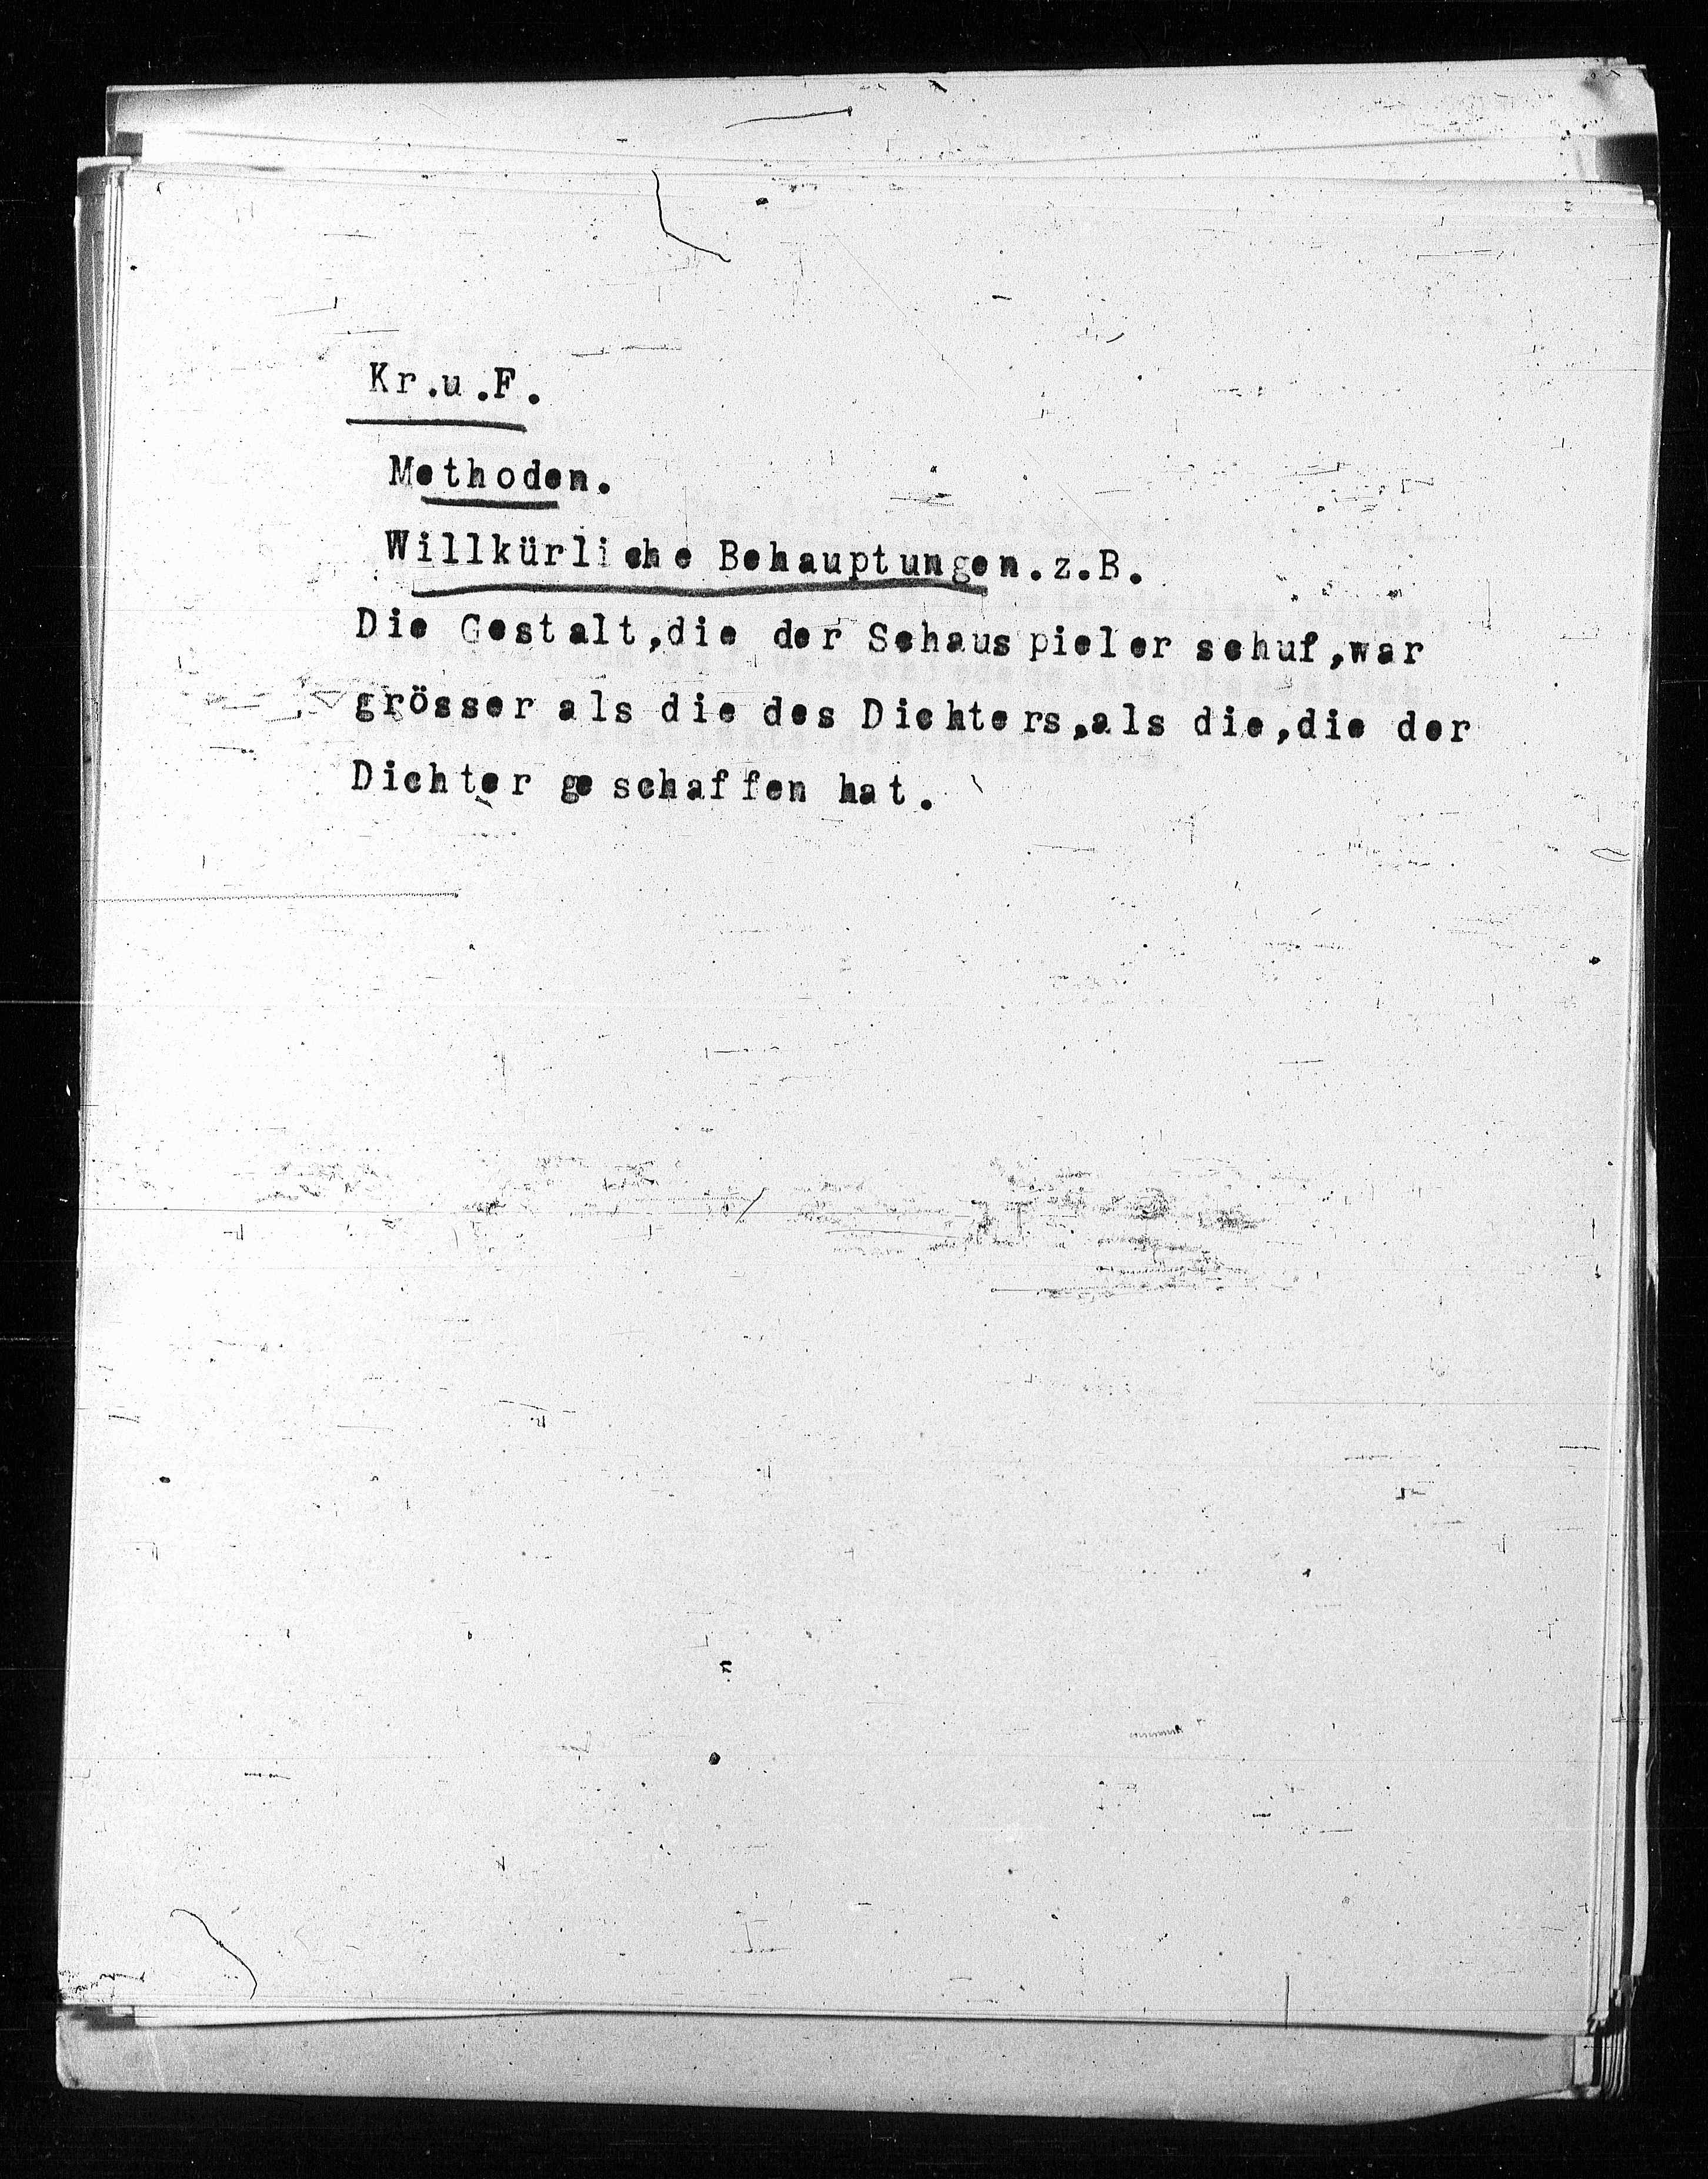 Kr.u.F.
Methoden.
Willkürliche Behauptungen.z.B.
Die Gestalt,die der Schauspieler schuf,war
grösser als die des Dichters,als die,die der
Dichter geschaffen hat.